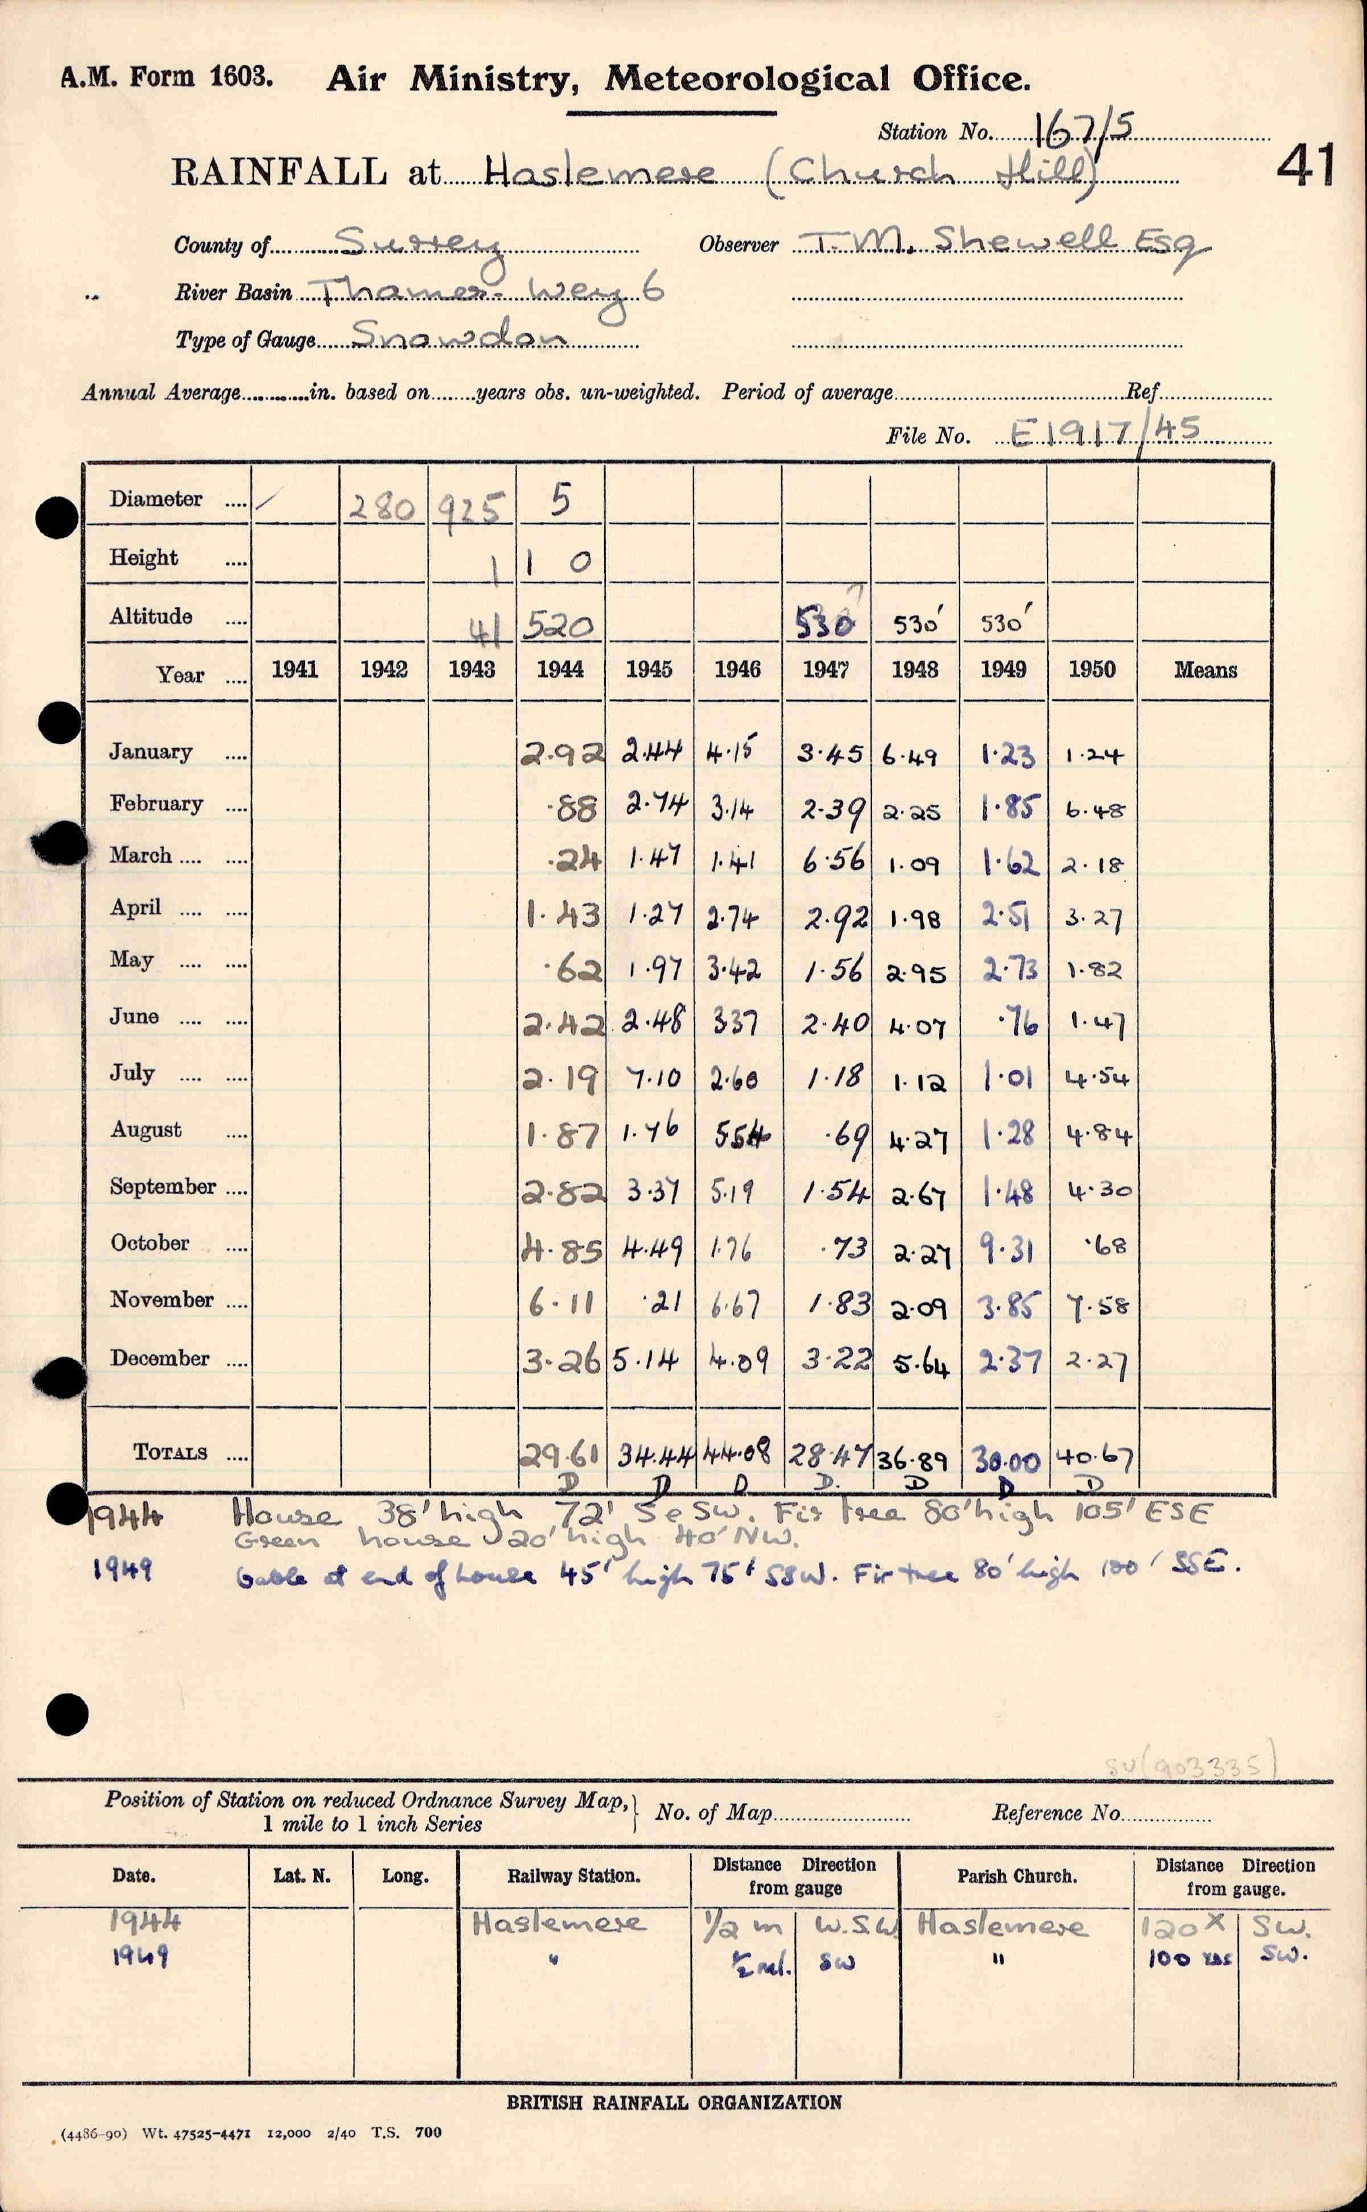 A.M. Form 1603. Air Ministry, Meteorological Office.
Station No. 167/5
41
RAINFALL at Haslemere (Church Hill)
County of Surrey Observer T.M. Shewell Esq
River Basin Thames- Wey 6
Type of Gauge Snowdon
Annual Average............in. based on........years obs. un-weighted. Period of average Ref.
File No. E1917/45
Diameter .... / 280 925 5
Height .... 1 1 0
Altitude .... 41 520 530 530' 530'
Year .... 1941 1942 1943 1944 1945 1946 1947 1948 1949 1950 Means
January .... 2.92 2.44 4.15 3.45 6.49 1.23 1.24
February .... .88 2.74 3.14 2.39 2.25 1.85 6.48
March .... .... .24 1.47 1.41 6.56 1.09 1.62 2.18
April .... .... 1.43 1.27 2.74 2.92 1.98 2.51 3.27
May .... .... .62 1.97 3.42 1.56 2.95 2.73 1.82
June .... .... 2.42 2.48 337 2.40 4.07 .76 1.47
July .... .... 2.19 7.10 2.60 1.18 1.12 1.01 4.54
August .... 1.87 1.76 554 .69 4.27 1.28 4.84
September .... 2.82 3.37 5.19 1.54 2.67 1.48 4.30
October .... 4.85 4.49 1.76 .73 2.27 9.31 .68
November .... 6.11 .21 6.67 1.83 2.09 3.85 7.58
December .... 3.26 5.14 4.09 3.22 5.64 2.37 2.27
TOTALS .... 29.61 34.44 44.08 28.47 36.89 30.00 40.67
D D D D. D D D
1944 House 38' high 72' S & SW. Fir tree 80' high 105' ESE
Green house 20' high 40' NW.
1949 Gable at end of house 45' high 75' SSW. Fir tree 80' high 100' SSE.
SU(903335)
Position of Station on reduced Ordnance Survey Map, 1 mile to 1 inch Series } No. of Map Reference No.
Date. Lat. N. Long. Railway Station. Distance Direction from gauge Parish Church. Distance Direction from gauge.
1944 Haslemere 1/2 m W.S.W Haslemere 120x SW.
1949 " 1/2 ml. SW " 100 yds SW.
BRITISH RAINFALL ORGANIZATION
(4486-90) Wt. 47525-4471 12,000 2/40 T.S. 700